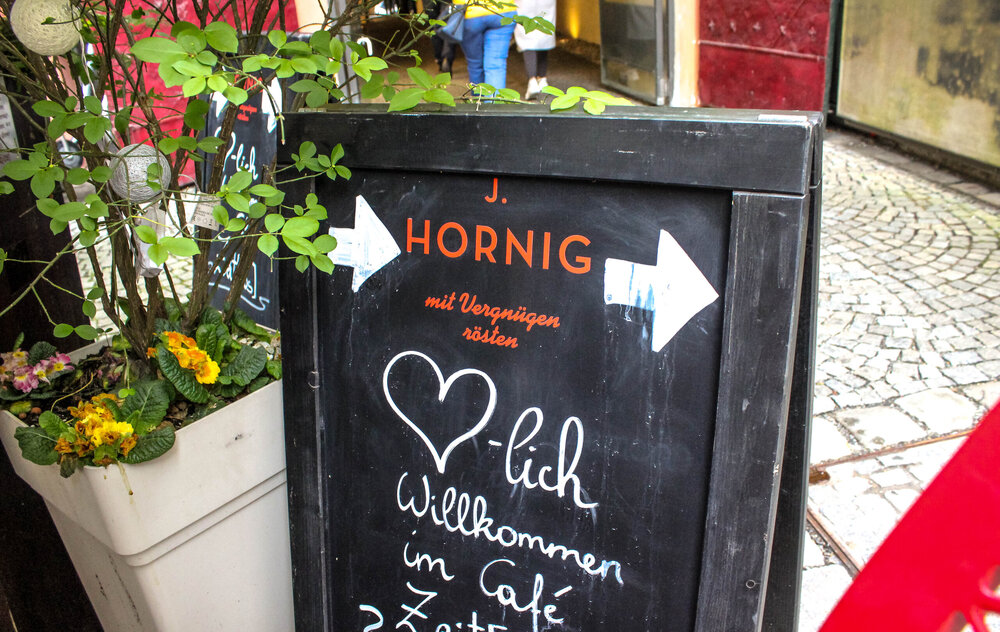 J.
HORNIG
mit Vergnügen
rösten
♥-lich
Willkommen
im Café
-lich